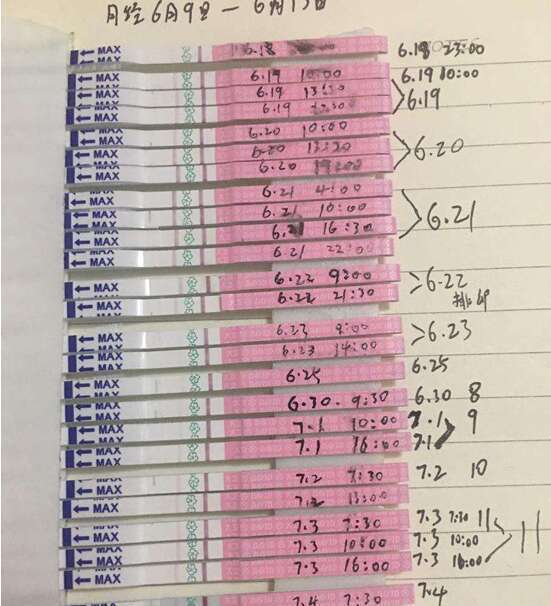 月经6月9日－6月13日
← MAX 6.18 6.18 23:00
← MAX 6.19 10:00 6.19 10:00
← MAX 6.19 13:30 6.19
← MAX 6.19
← MAX 6.20 10:00
← MAX 6.20 13:30 6.20
← MAX 6.20 19:00
← MAX 6.21 4:00
← MAX 6.21 10:00 6.21
← MAX 6.21 16:30
← MAX 6.21 22:00
← MAX 6.22 9:00 6.22
← MAX 6.22 21:30 排卵
← MAX 6.23 9:00 6.23
← MAX 6.23 14:00
← MAX 6.25 6.25
← MAX 6.30. 9:30 6.30 8
← MAX 7.1 10:00 7.1 9
← MAX 7.1 16:00 7.1
← MAX 7.2 8:30 7.2 10
← MAX 7.2 13:00
← MAX 7.3 7:30 7.3 7:30 11
← MAX 7.3 10:00 7.3 10:00 11
← MAX 7.3 16:00 7.3 16:00
7.4 7:30 7.4